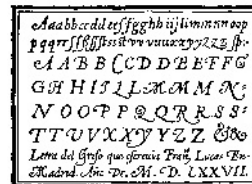 Aaabbccddeeſfgghhiijllmmnnoop
pqqrrſſſſſtssttvvuuxxyyzzz
A A B B C C D D E E F F G
G H H I I L L M M M N
N O O P P Q Q R R S S
T T U V X X Y Y Z Z &
Letra del Grifo que escreuia Franᶜᵒ Lucas En
Madrid Año De M. D. LXXVII